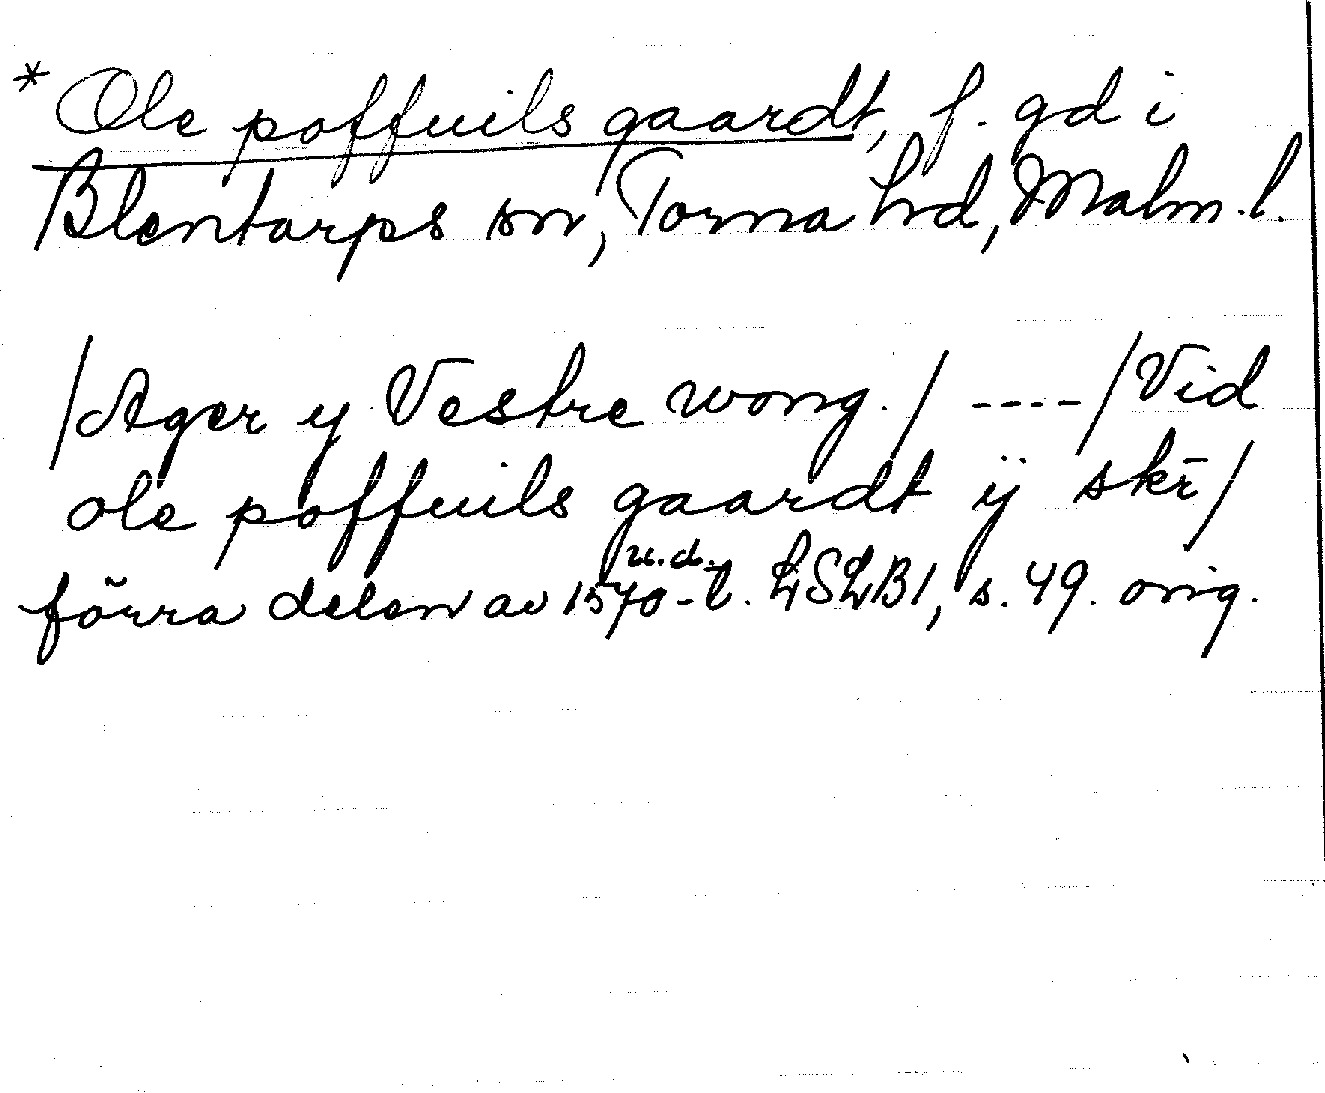 * Ole poffuils gaardt, f. gd i
Blentarps sn, Torna hd, Malm. l.
/Ager y Vestre wong./ ----/Vid
ole poffuils gaardt ij skr̄/
förra delen av 1570-t. u.d. LSLB1, s. 49. orig.